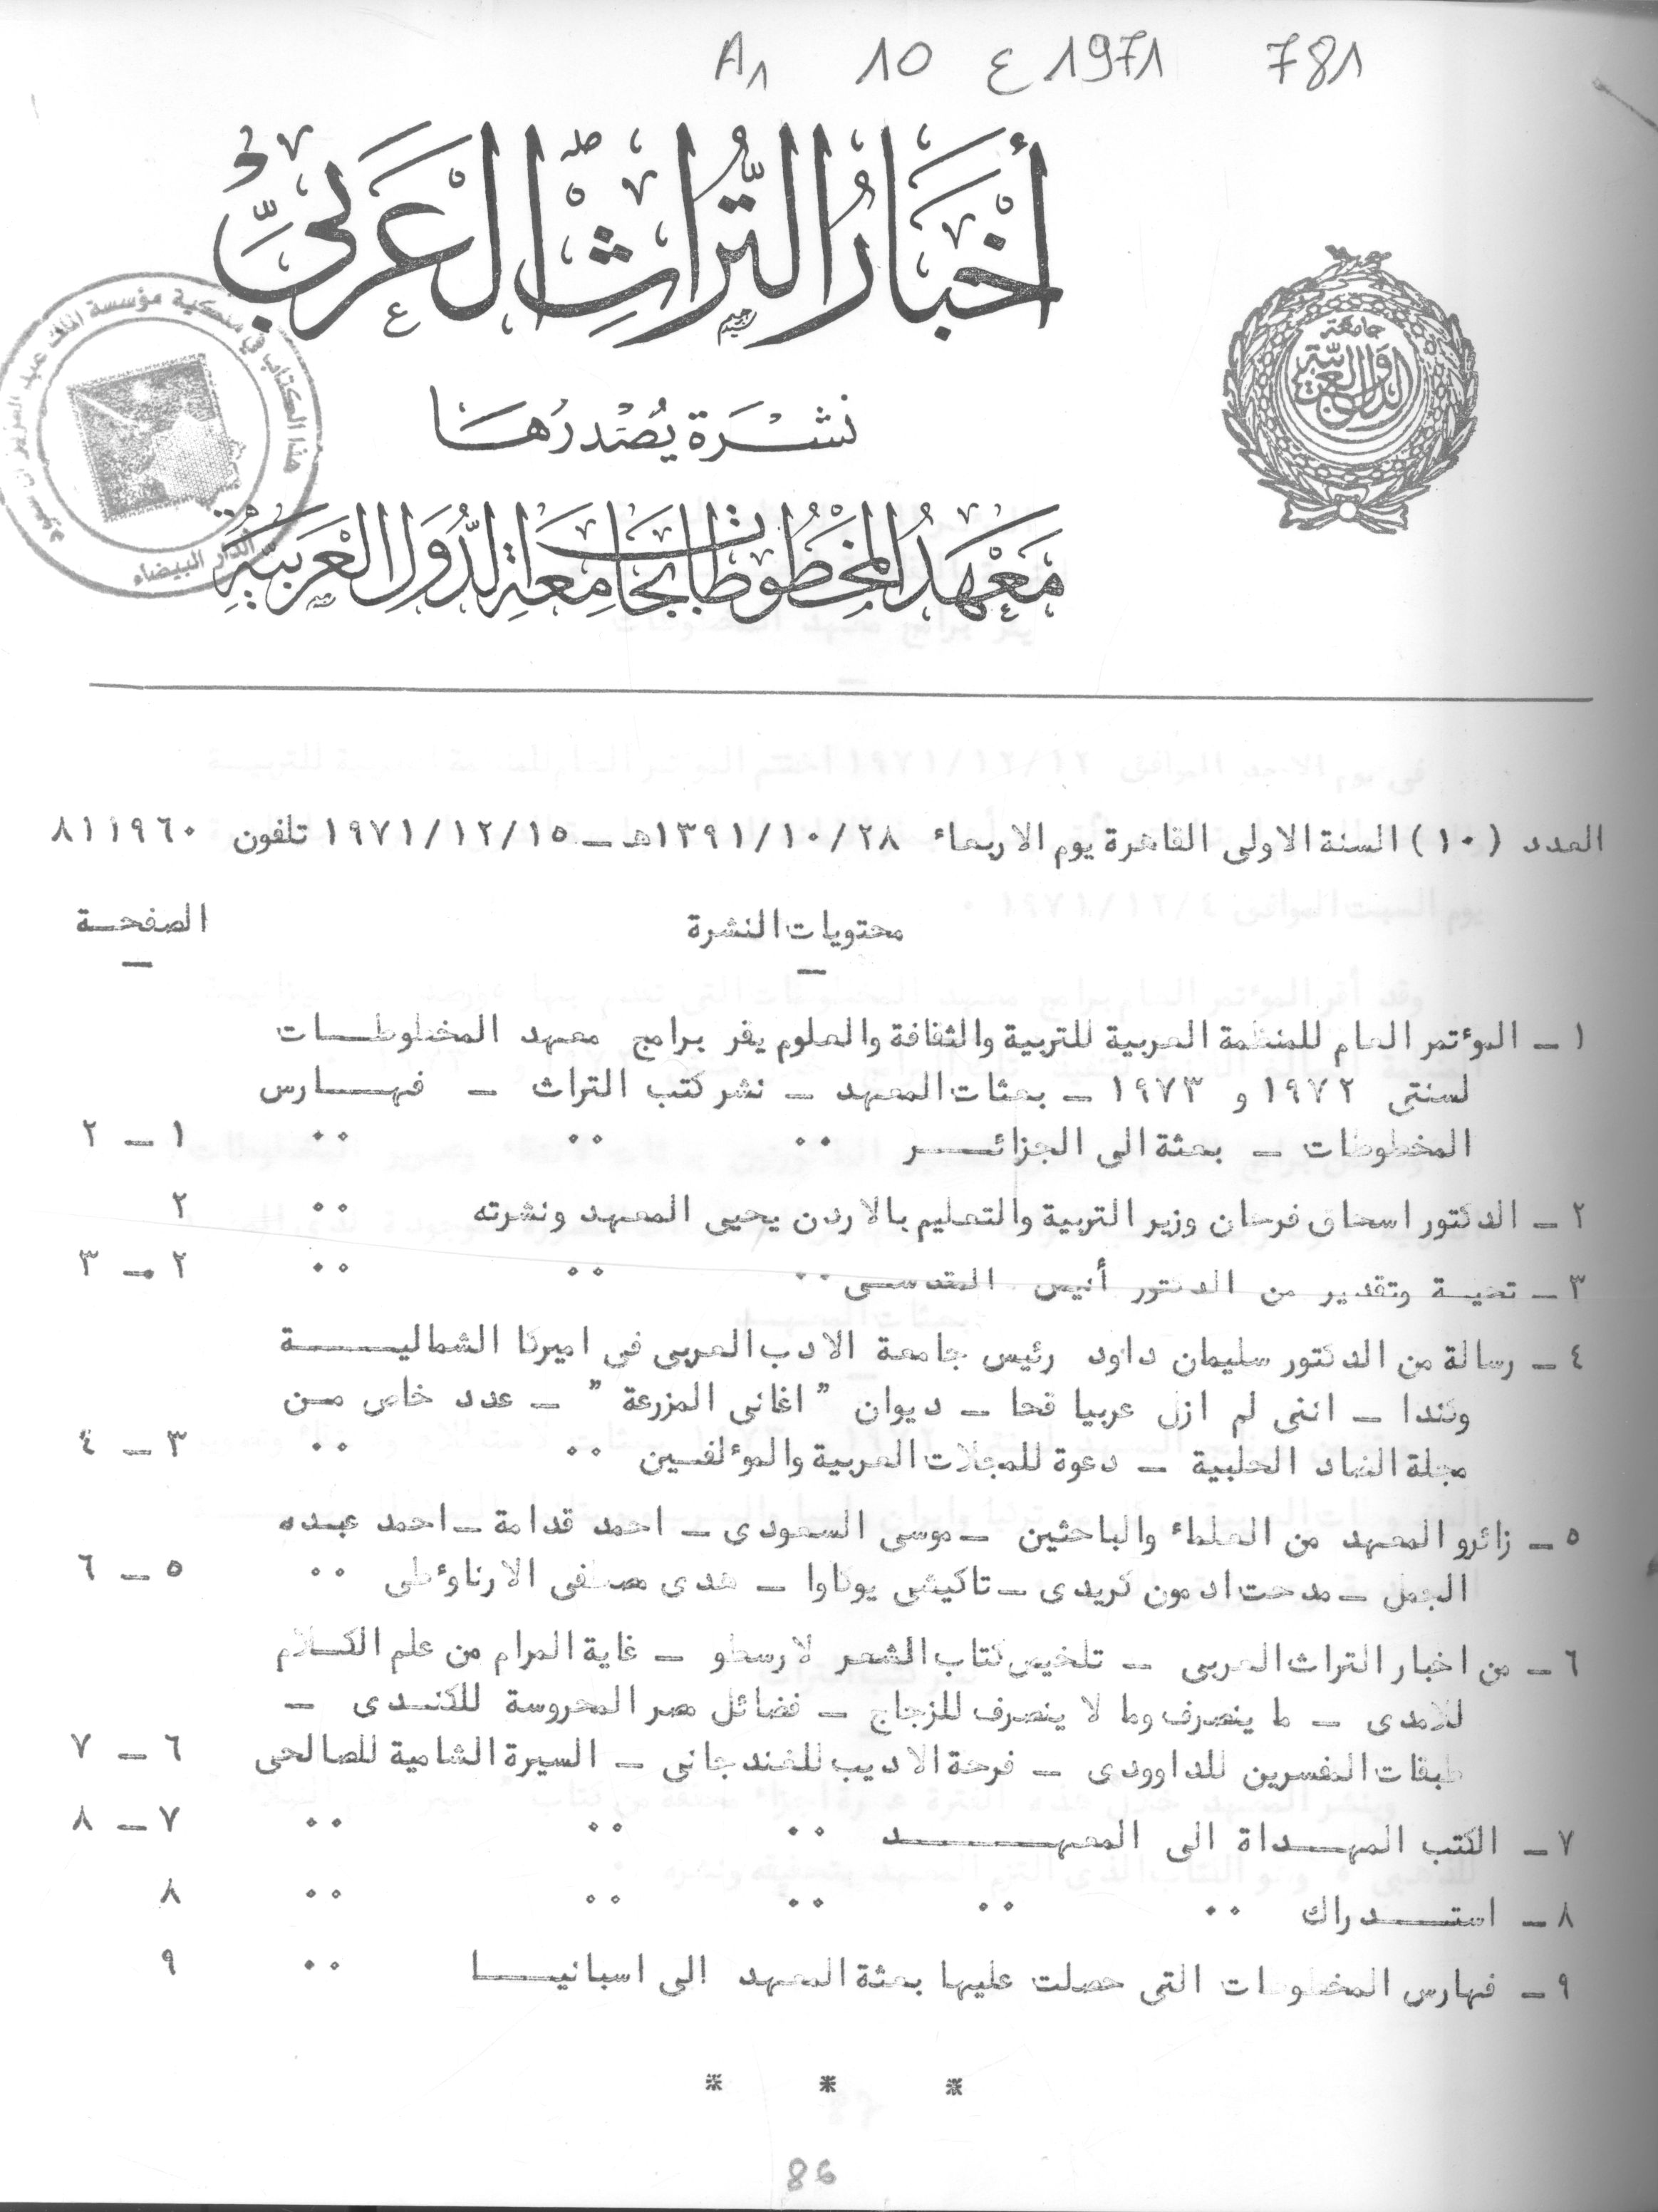 A1 10 ع 1971 781
أخبار التراث العربي
جامعة الدول العربية
نشرة يصدرها
معهد المخطوطات بجامعة الدول العربية
هذا الكتاب في ملكية مؤسسة الملك عبد العزيز آل سعود
الدار البيضاء
العدد (١٠) السنة الاولى القاهرة يوم الاربعاء ١٣٩١/١٠/٢٨هـ – ١٩٧١/١٢/١٥ تلفون ٨١١٩٦٠
محتويات النشرة الصفحة
١ – المؤتمر العام للمنظمة العربية للتربية والثقافة والعلوم يقر برامج معهد المخطوطات
لسنتى ١٩٧٢ و ١٩٧٣ – بعثات المعهد – نشر كتب التراث – فهارس
المخطوطات – بعثة الى الجزائر ٠٠ ٠٠ ٠٠ ١ – ٢
٢ – الدكتور اسحاق فرحان وزير التربية والتعليم بالاردن يحيى المعهد ونشرته ٠٠ ٢
٣ – تحية وتقدير من الدكتور أنيس المقدسى ٠٠ ٠٠ ٠٠ ٢ – ٣
٤ – رسالة من الدكتور سليمان داود رئيس جامعة الادب العربى فى اميركا الشمالية
وكندا – اننى لم ازل عربيا قحا – ديوان " اغانى المزرعة " – عدد خاص من
مجلة الضاد الحلبية – دعوة للمجلات العربية والمؤلفين ٠٠ ٠٠ ٣ – ٤
٥ – زائرو المعهد من العلماء والباحثين – موسى السعودى – احمد قدامة – احمد عبده
الجمل – مدحت ادمون كريدى – تاكيشى يوكاوا – هدى مصطفى الارناؤطى ٠٠ ٥ – ٦
٦ – من اخبار التراث العربى – تلخيص كتاب الشعر لارسطو – غاية المرام من علم الكلام
للامدى – ما ينصرف وما لا ينصرف للزجاج – فضائل مصر المحروسة للكندى –
طبقات المفسرين للداوودى – فرحة الاديب للغندجانى – السيرة الشامية للصالحى ٦ – ٧
٧ – الكتب المهداة الى المعهد ٠٠ ٠٠ ٠٠ ٧ – ٨
٨ – استدراك ٠٠ ٠٠ ٠٠ ٠٠ ٠٠ ٨
٩ – فهارس المخطوطات التى حصلت عليها بعثة المعهد الى اسبانيا ٠٠ ٩
* * *
86